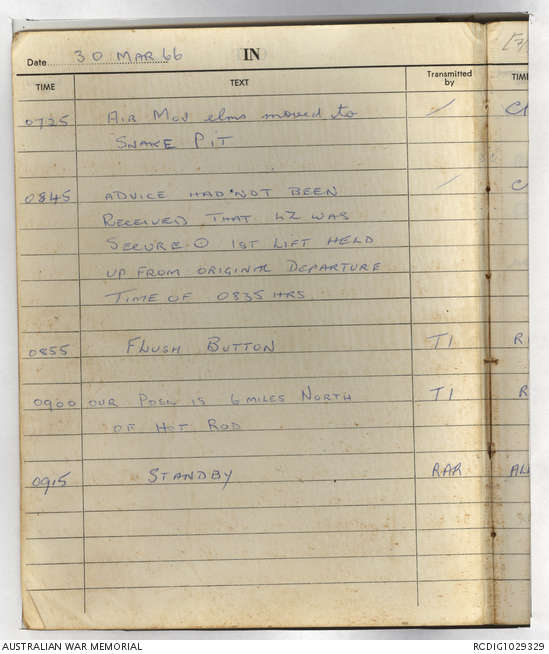 Date 30 MAR 66 IN
TIME TEXT Transmitted by TIM
0725 AIR MOV elms moved to / CA
SNAKE PIT
0845 ADVICE HAD NOT BEEN / C
RECEIVED THAT LZ WAS
SECURE. 1ST LIFT HELD
UP FROM ORIGINAL DEPARTURE
TIME OF 0835 HRS
0855 FLUSH BUTTON T1 R
0900 OUR POSN IS 6 MILES NORTH T1 R
OF HOT ROD
0915 STANDBY RAR ALL
AUSTRALIAN WAR MEMORIAL RCDIG1029329